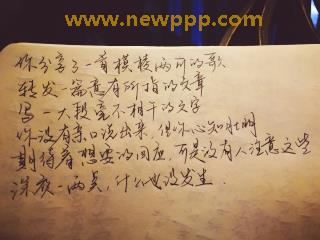 www.newppp.com
你分享了一首模棱两可的歌
转发一篇意有所指的文章
写一大段毫不相干的文字
你没有亲口说出来，但你心知肚明
期待着想要的回应，可是没有人注意这些
深夜一两点，什么也没发生．